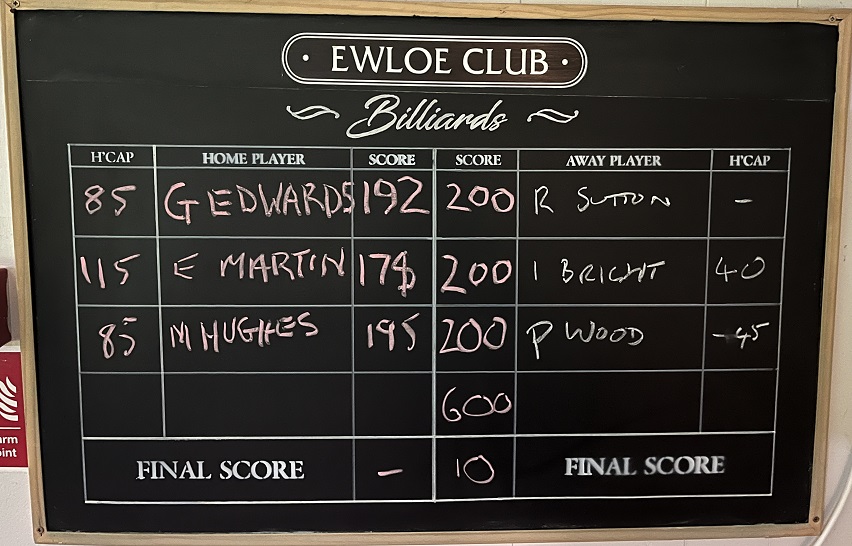 EWLOE CLUB
Billiards
H'CAP HOME PLAYER SCORE SCORE AWAY PLAYER H'CAP
85 G EDWARDS 192 200 R SUTTON -
115 E MARTIN 200 I BRIGHT 40
85 M HUGHES 195 200 P WOOD -45
600
FINAL SCORE - 10 FINAL SCORE
arm
oint